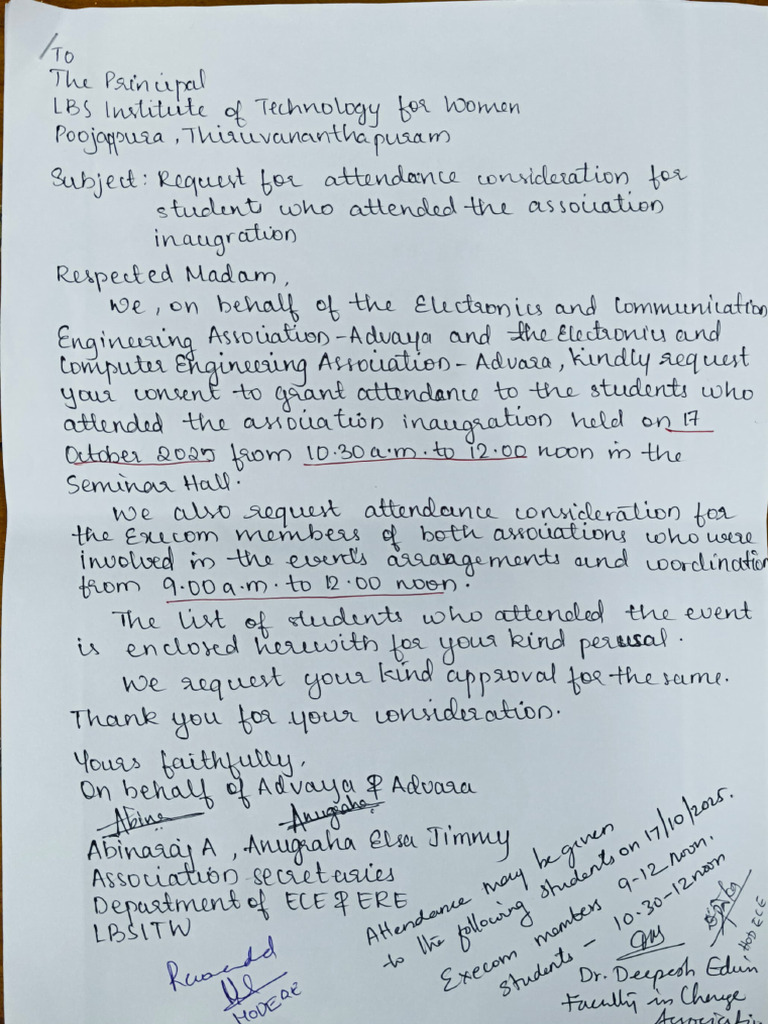 To
The Principal
LBS Institute of Technology for Women
Poojappura, Thiruvananthapuram
Subject: Request for attendance consideration for
student who attended the association
inaugration
Respected Madam,
We, on behalf of the Electronics and Communication
Engineering Association-Advaya and the Electronics and
Computer Engineering Association - Advara, kindly request
your consent to grant attendance to the students who
attended the association inaugration held on 17
October 2025 from 10.30 a.m. to 12.00 noon in the
Seminar Hall.
We also request attendance consideration for
the Execom members of both associations who were
involved in the event's arrangements and coordination
from 9.00 a.m. to 12.00 noon.
The list of students who attended the event
is enclosed herewith for your kind perusal.
We request your kind approval for the same.
Thank you for your consideration.
Yours faithfully,
On behalf of Advaya & Advara
Abina Anugraha
Abinaraj A, Anugraha Elsa Jimmy
Association secretaries
Department of ECE & ERE
LBSITW
Attendance may be given
to the following students on 17/10/2025.
Execom members 9-12 noon.
students - 10.30-12 noon
HOD ECE
Dr. Deepesh Edwin
Faculty in Charge
Association
HOD ERE